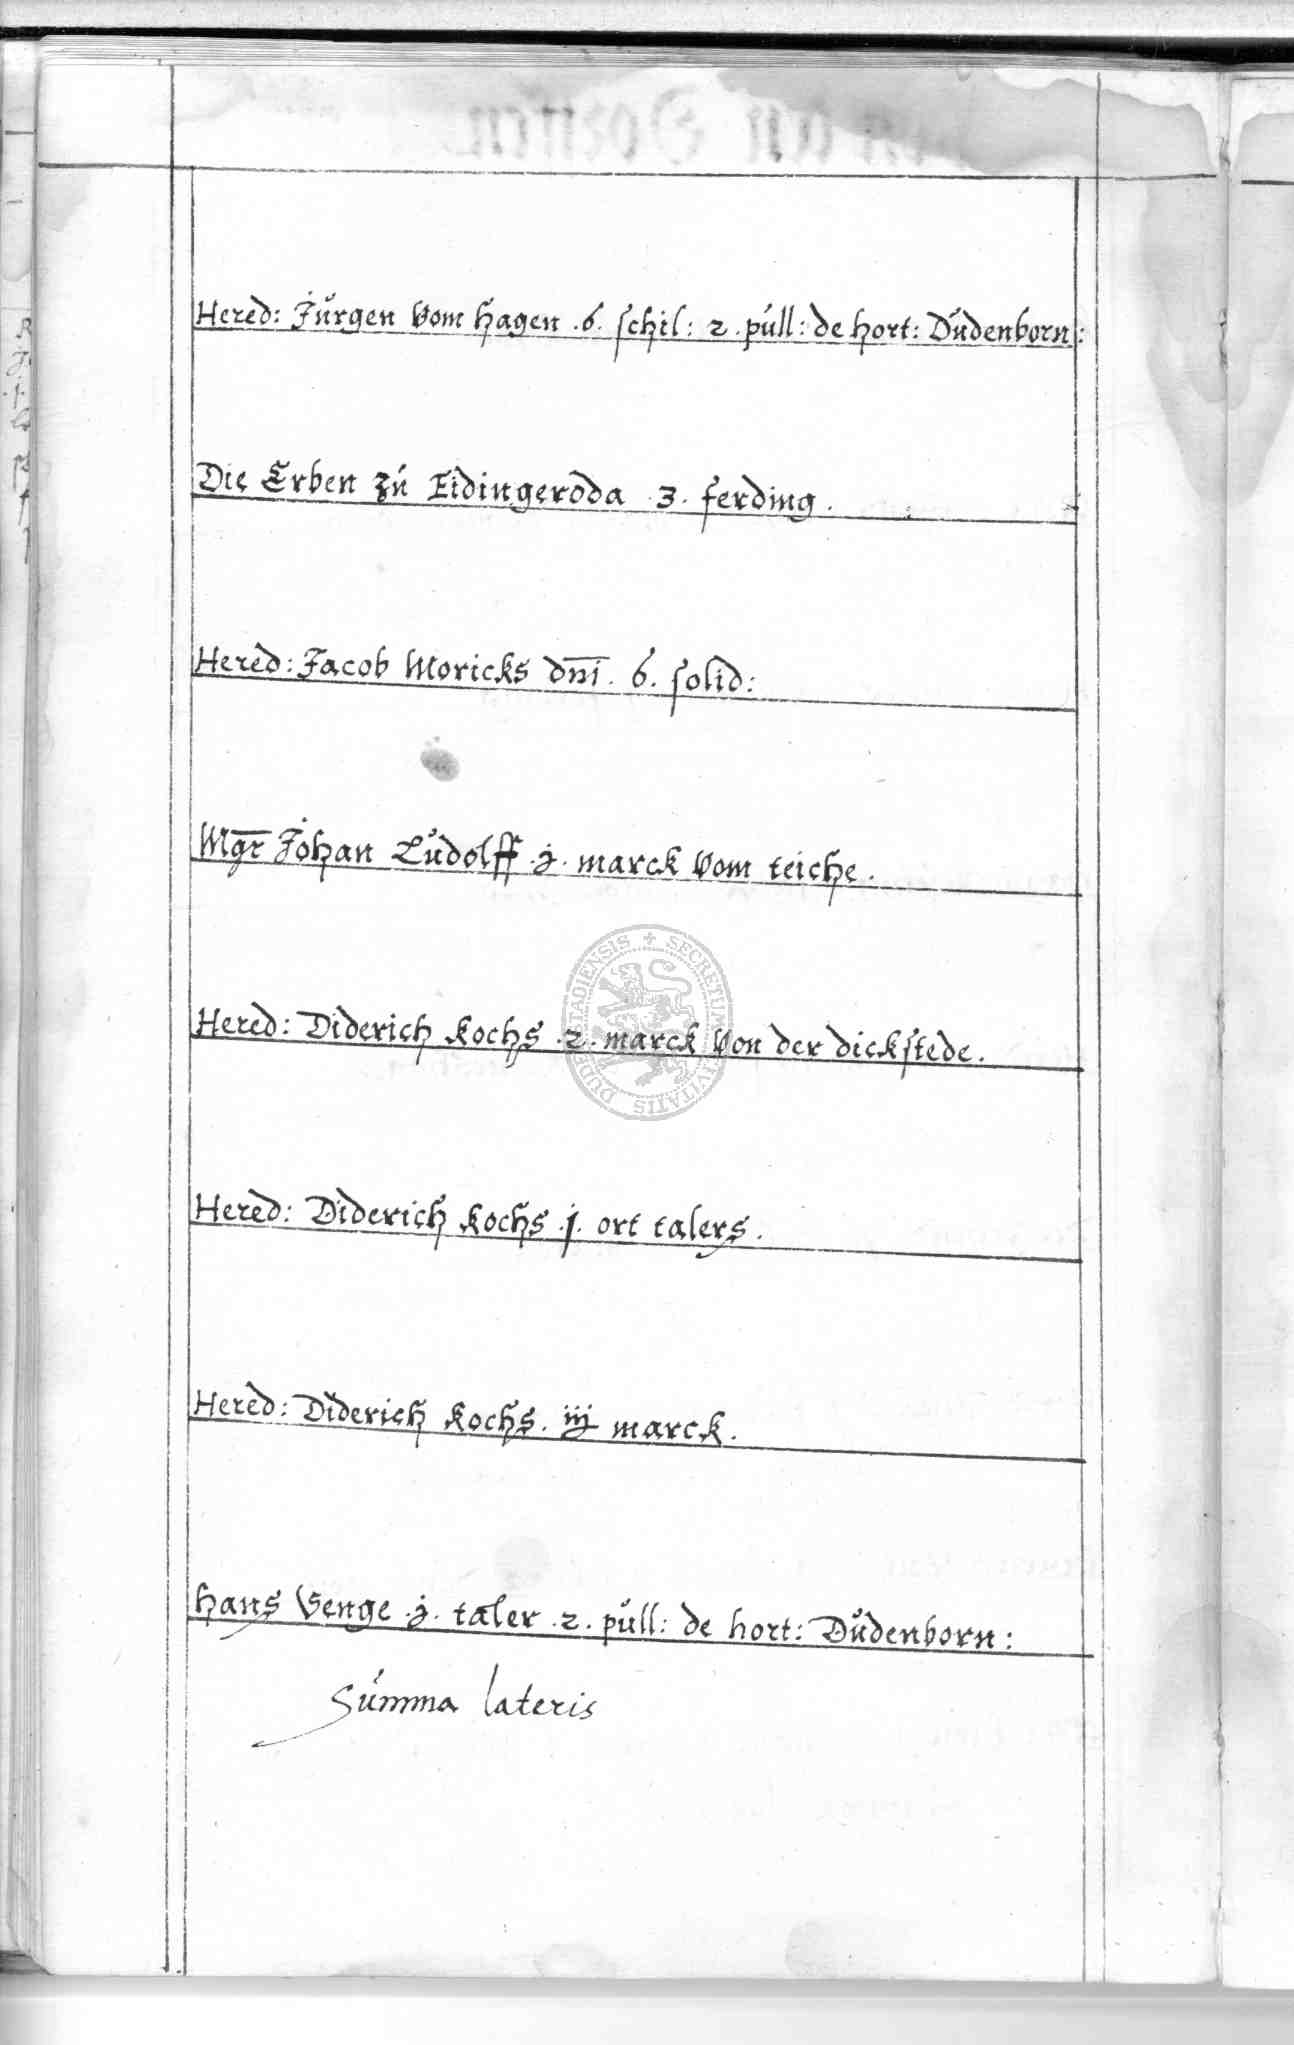 Hered: Jürgen Vom Hagen .6. schil: 2. pull: de hort: Dudenborn:
Die Erben zu Eidingeroda .3. ferding.
Hered: Jacob Moricks dni. 6. solid:
Mgr Johan Ludolff .j. marck Vom teiche.
Hered: Diderich Kochs .2. marck Von der dickstede.
Hered: Diderich Kochs .j. ort talers.
Hered: Diderich Kochs. iij marck.
Hans Venge .j. taler .2. pull: de hort: Dudenborn:
Summa lateris
SECRETUM CIVITATIS DUDERSTADIENSIS